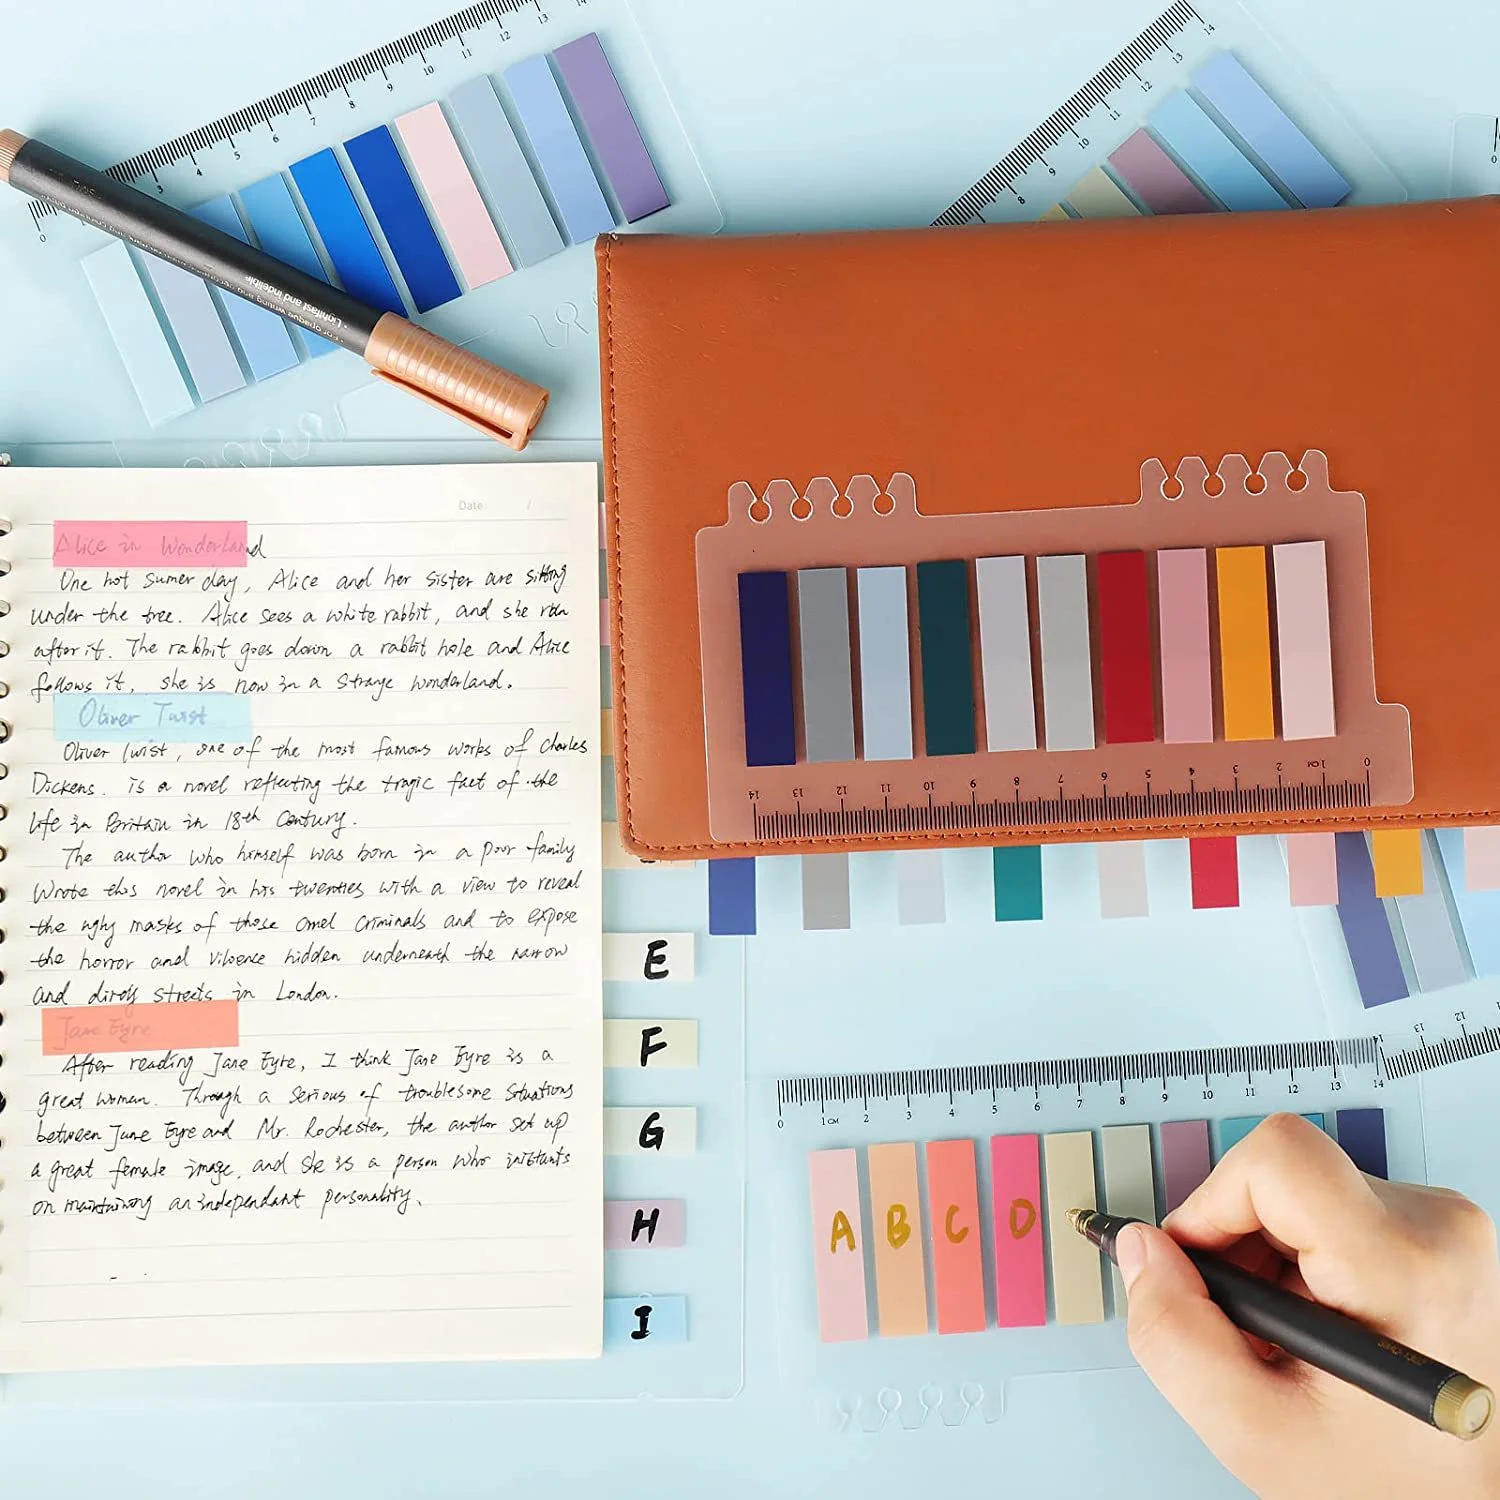 0 3 4 5 6 7 8 9 10 11 12 13 14
8 9 11 12 13 14
• Lightfast and indelible
• For opaque writing
Date /
Alice in Wonderland
One hot sumer day, Alice and her sister are sitting
under the tree. Alice sees a white rabbit, and she run
after it. The rabbit goes down a rabbit hole and Alice
follows it, she is now in a strange wonderland.
Oliver Twist
Oliver Twist, one of the most famous works of Charles
Dickens. is a novel reflecting the tragic fact of the
life in Britain in 18th Century.
The author who himself was born in a poor family
Wrote this novel in his twenties with a view to reveal
the ugly masks of those cruel criminals and to expose
the horror and violence hidden underneath the narrow
and dirty streets in London.
Jane Eyre
After reading Jane Eyre, I think Jane Eyre is a
great woman. Through a serious of troublesome situations
between Jane Eyre and Mr. Rochester, the author set up
a great female image, and she is a person who
on maintaining an independant personality.
E
F
G
H
I
14 13 12 11 10 9 8 7 6 5 4 3 2 1CM 0
0 1CM 2 3 4 5 6 7 8 9 10 11 12 13 14
14 13 12
A B C D